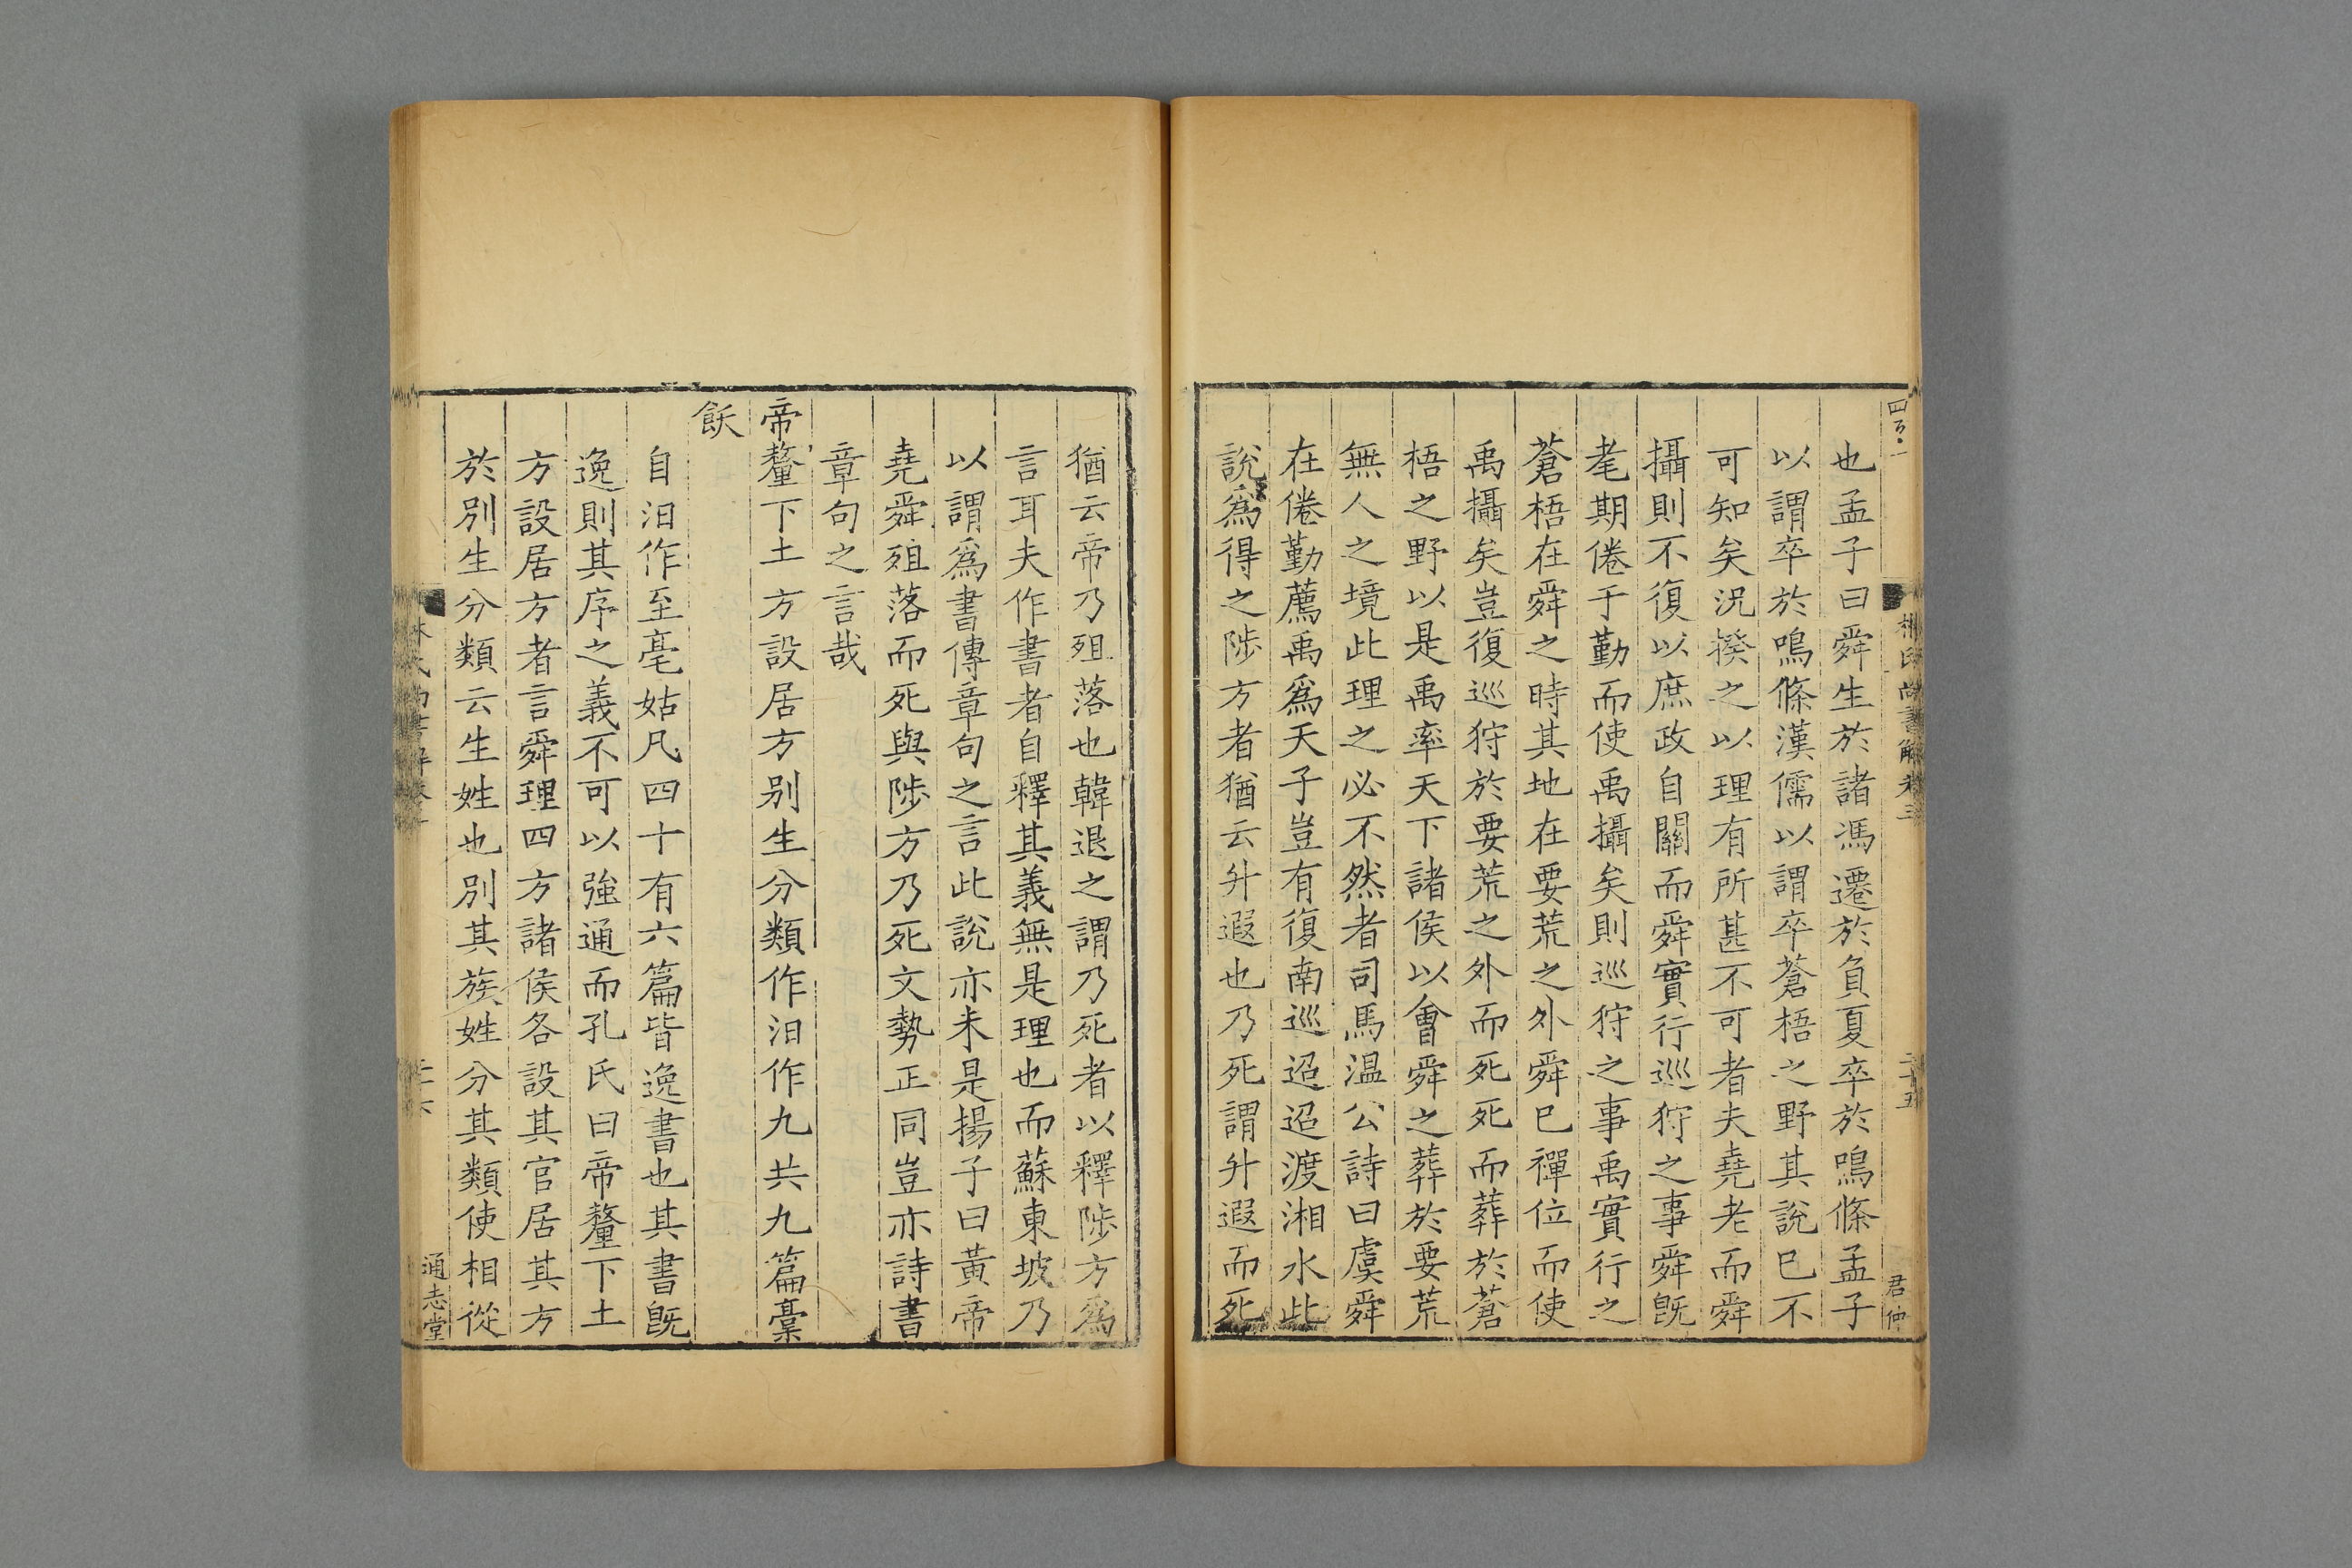 四百一
林氏尚書解卷三
二十五
君仲
也孟子曰舜生於諸馮遷於負夏卒於鳴條孟子
以謂卒於鳴條漢儒以謂卒蒼梧之野其說已不
可知矣況揆之以理有所甚不可者夫堯老而舜
攝則不復以庶政自關而舜實行巡狩之事舜旣
耄期倦于勤而使禹攝矣則巡狩之事禹實行之
蒼梧在舜之時其地在要荒之外舜已禪位而使
禹攝矣豈復巡狩於要荒之外而死死而葬於蒼
梧之野以是禹率天下諸侯以會舜之葬於要荒
無人之境此理之必不然者司馬温公詩曰虞舜
在倦勤薦禹爲天子豈有復南巡迢迢渡湘水此
說爲得之陟方者猶云升遐也乃死謂升遐而死
猶云帝乃殂落也韓退之謂乃死者以釋陟方爲
言耳夫作書者自釋其義無是理也而蘇東坡乃
以謂爲書傳章句之言此說亦未是揚子曰黃帝
堯舜殂落而死與陟方乃死文勢正同豈亦詩書
章句之言哉
帝釐下土方設居方别生分類作汨作九共九篇槀
飫
自汨作至亳姑凡四十有六篇皆逸書也其書旣
逸則其序之義不可以強通而孔氏曰帝釐下土
方設居方者言舜理四方諸侯各設其官居其方
於別生分類云生姓也別其族姓分其類使相從
林氏尚書解卷三
二十六
通志堂